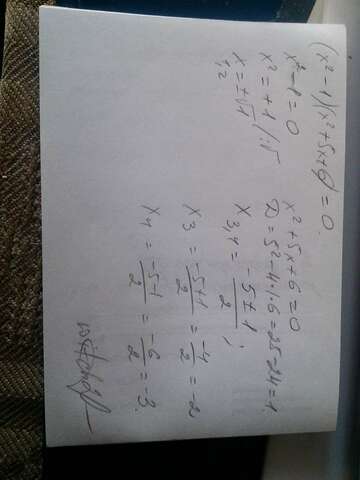 (x²-1)(x²+5x+6)=0
x²-1=0
x²=+1 /√
x₁,₂=±√1
x²+5x+6=0
D=5²-4·1·6=25-24=1
x₃,₄=(-5±1)/2;
x₃=(-5+1)/2=-4/2=-2
x₄=(-5-1)/2=-6/2=-3.